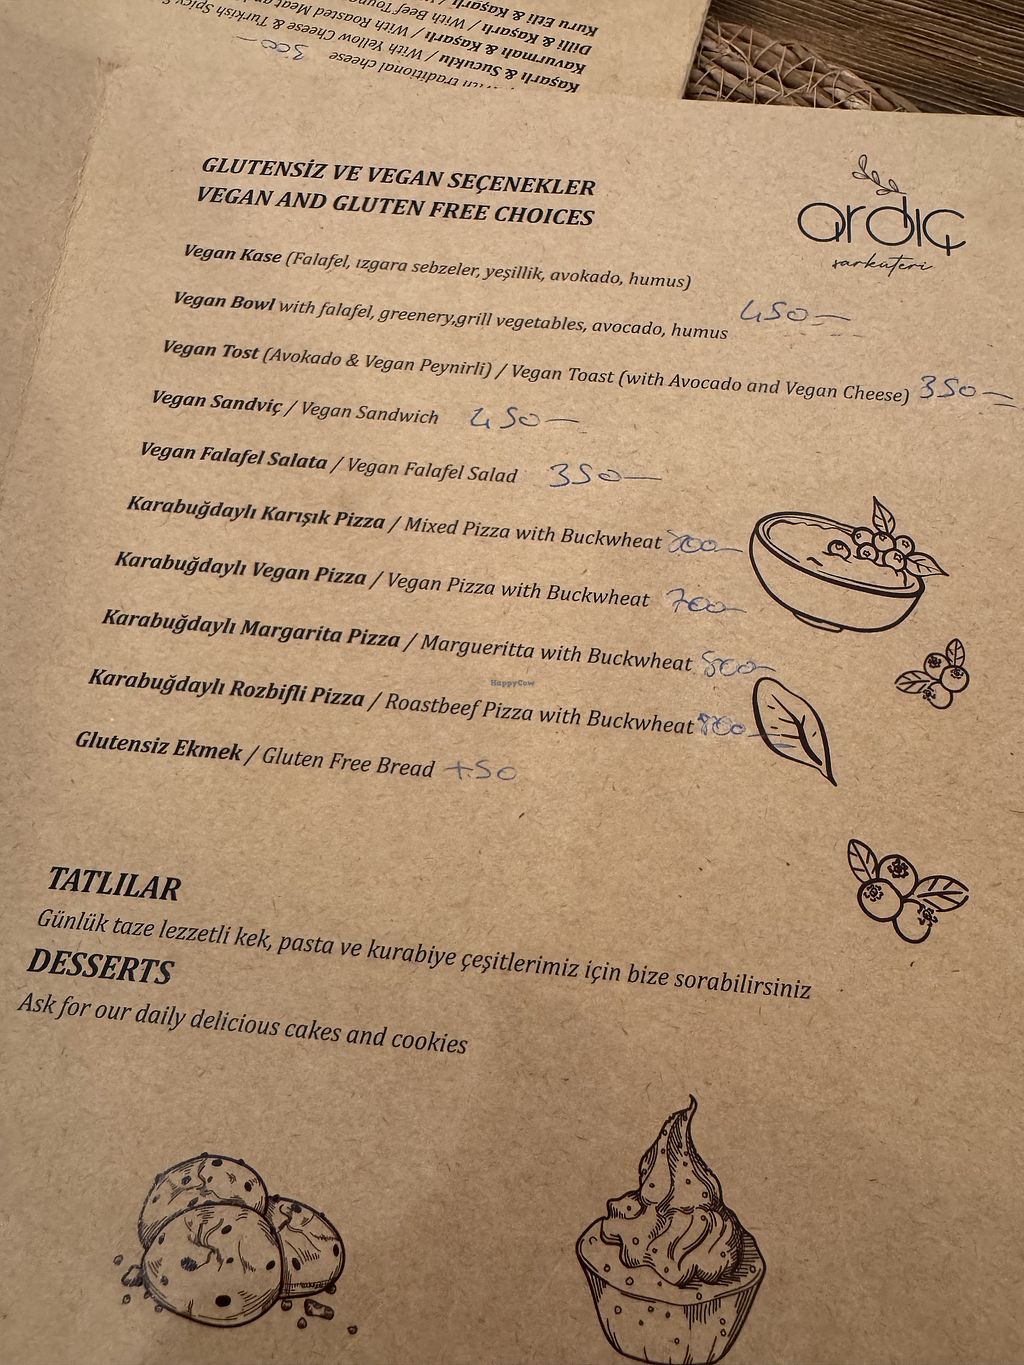 Kuru Etli & Kaşarlı
Dilli & Kaşarlı / With Beef
Kavurmalı & Kaşarlı / With Roasted Meat
Kaşarlı & Sucuklu / With Yellow Cheese & Turkish Spicy
traditional cheese 300-
GLUTENSİZ VE VEGAN SEÇENEKLER
VEGAN AND GLUTEN FREE CHOICES
ardıç
şarküteri
Vegan Kase (Falafel, ızgara sebzeler, yeşillik, avokado, humus)
Vegan Bowl with falafel, greenery,grill vegetables, avocado, humus 450-
Vegan Tost (Avokado & Vegan Peynirli) / Vegan Toast (with Avocado and Vegan Cheese) 350-
Vegan Sandviç / Vegan Sandwich 450-
Vegan Falafel Salata / Vegan Falafel Salad 350-
Karabuğdaylı Karışık Pizza / Mixed Pizza with Buckwheat
Karabuğdaylı Vegan Pizza / Vegan Pizza with Buckwheat 700-
Karabuğdaylı Margarita Pizza / Margueritta with Buckwheat
Karabuğdaylı Rozbifli Pizza / Roastbeef Pizza with Buckwheat
Glutensiz Ekmek / Gluten Free Bread +50
HappyCow
TATLILAR
Günlük taze lezzetli kek, pasta ve kurabiye çeşitlerimiz için bize sorabilirsiniz
DESSERTS
Ask for our daily delicious cakes and cookies